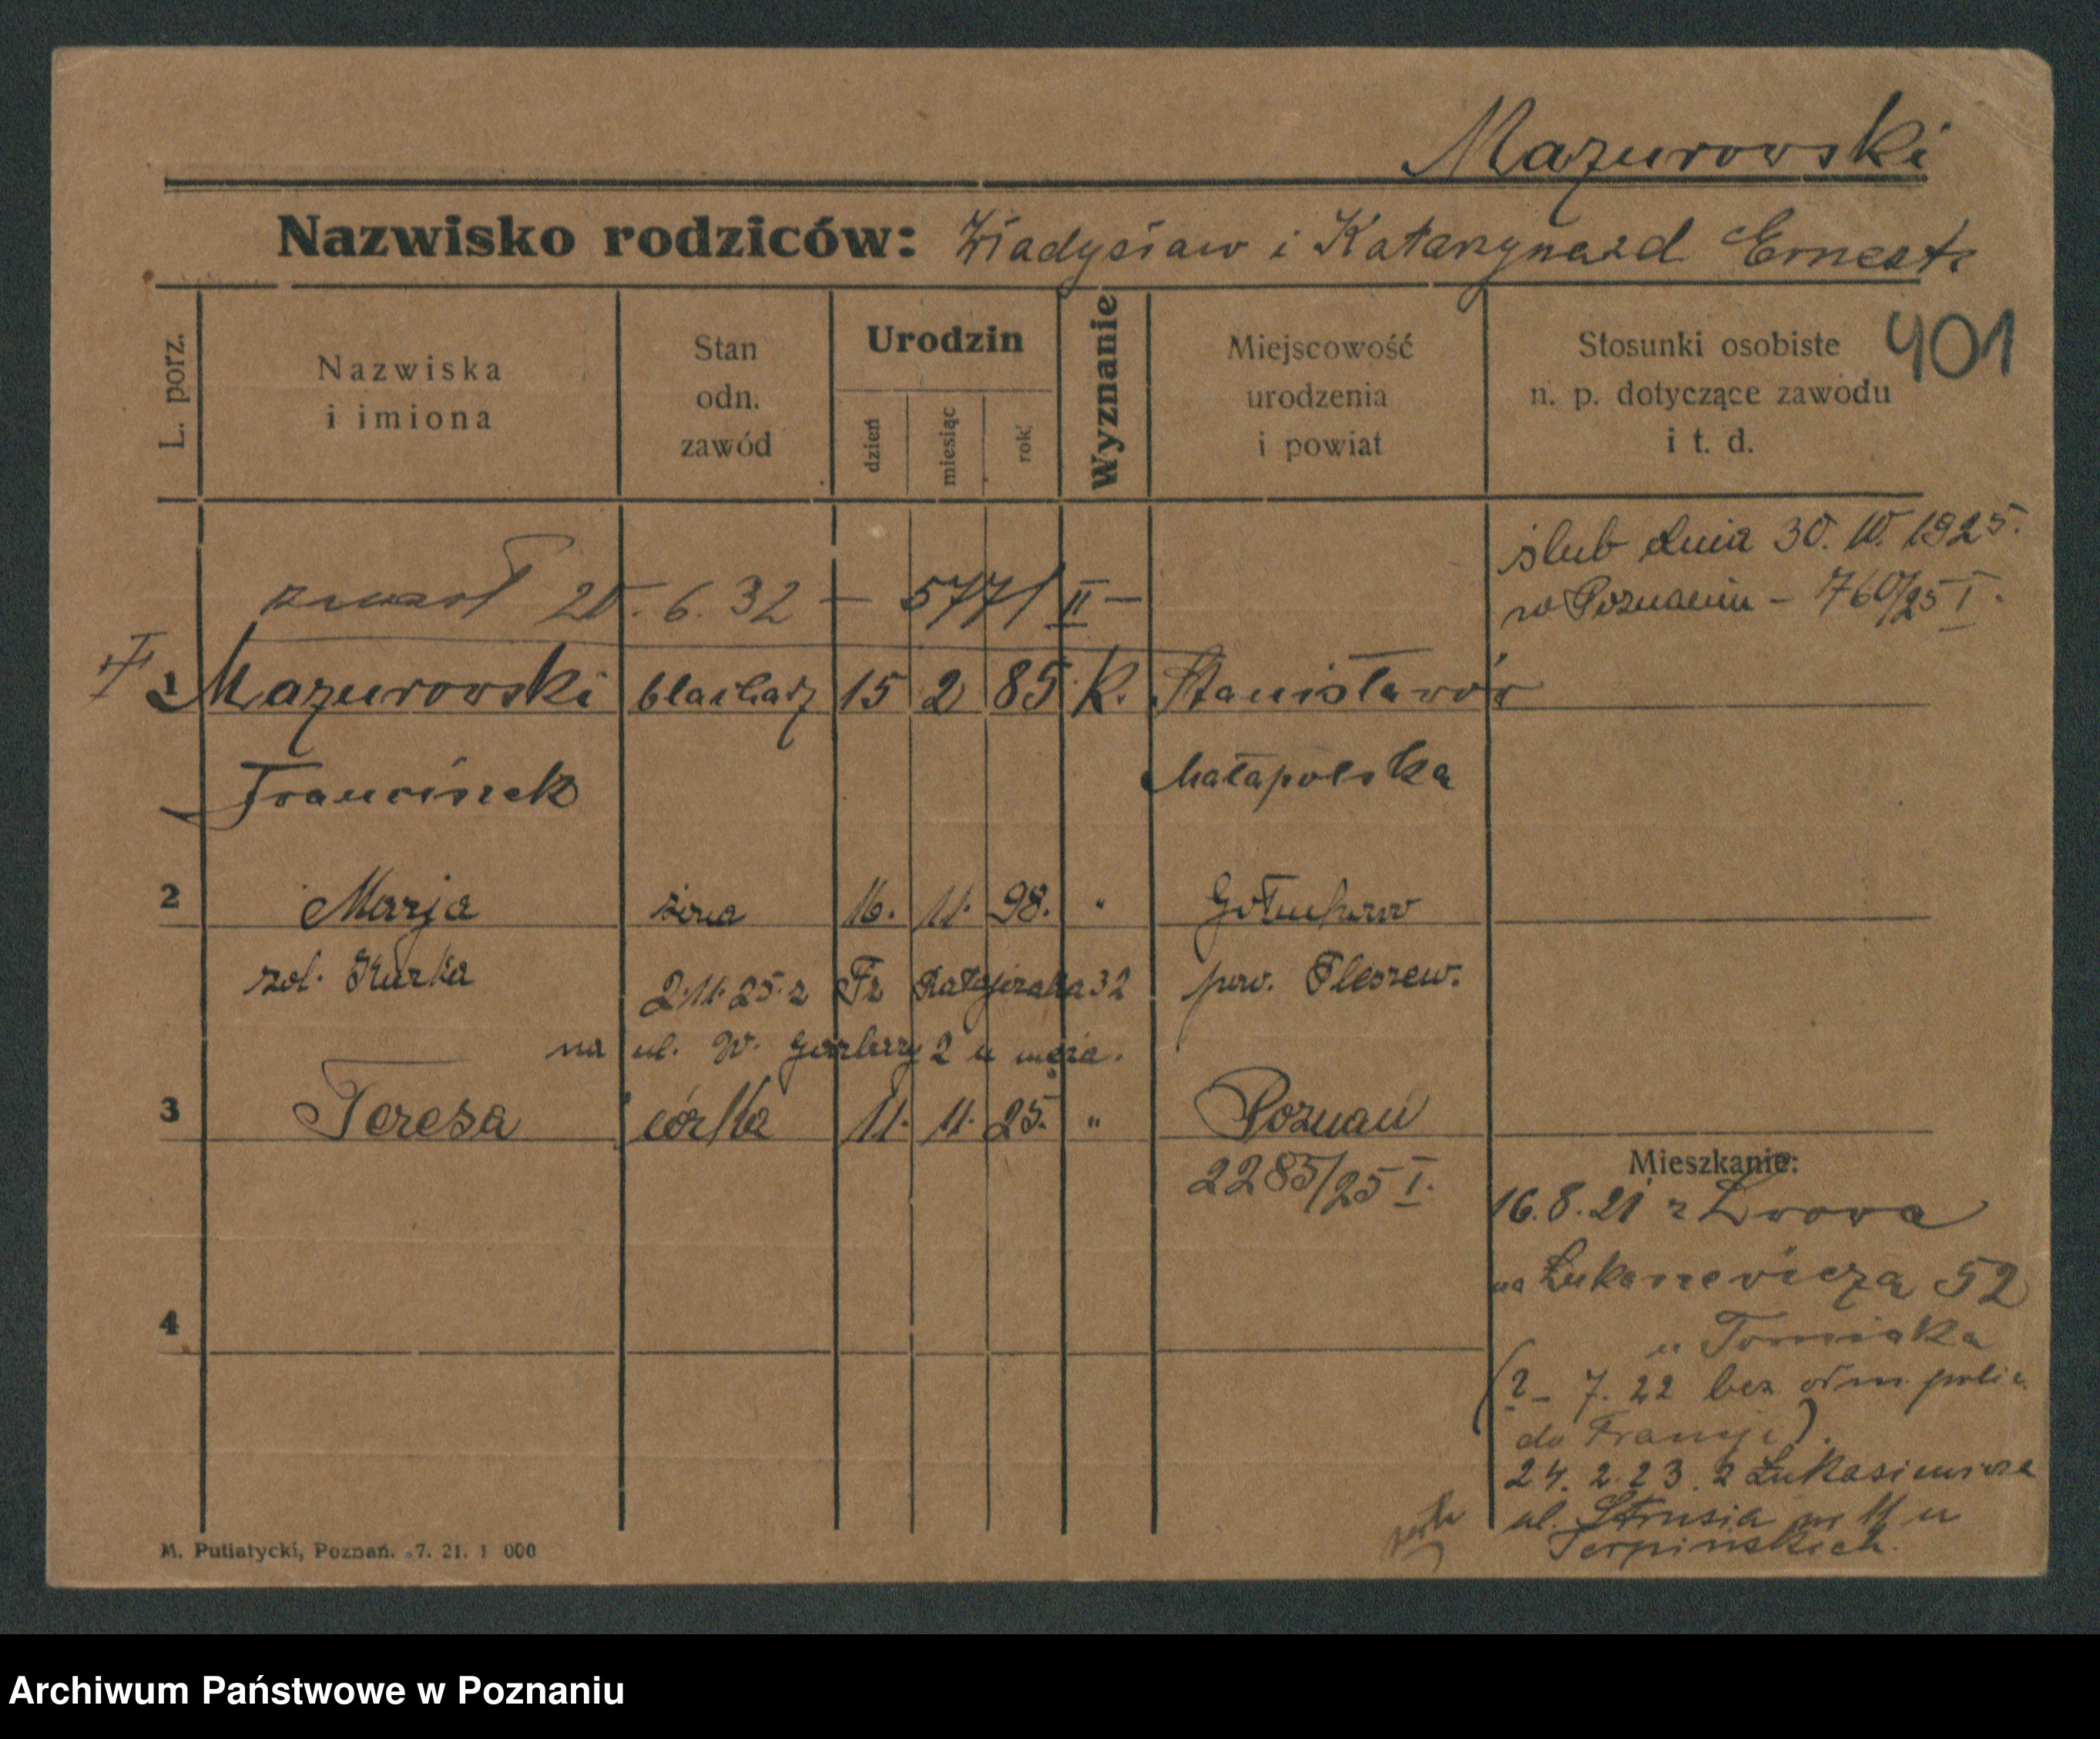 Mazurowski
Nazwisko rodziców: Władysław i Katarzyna zd Ernest
401
L. porz.
Nazwiska
i imiona
Stan
odn.
zawód
Urodzin
dzień
miesiąc
rok
Wyznanie
Miejscowość
urodzenia
i powiat
Stosunki osobiste
n. p. dotyczące zawodu
i t. d.
ślub dnia 30. 10. 1925.
w Poznaniu - 760/25 I.
zmarł 20. 6. 32 — 577/ II —
1 Mazurowski blacharz 15 2 85 K. Stanisławów
Franciszek Małapolska
2 Marja żona 16. 11. 98. " Gołuchow
zol. Kurka pow. Pleszew.
2.11.25. z Fr Ratajczaka 32
na ul. W. Garbary 2 u męża.
3 Teresa córka 11. 11. 25. " Poznań
2285/25 I.
Mieszkanie:
16. 8. 21 z Lwowa
na Łukaszewicza 52
u Tomiaka
(?- 7. 22 bez odm. polic.
do Francji).
4
24. 2. 23. z Łukasiewicza
ul. Strusia nr 11 u
Terpińskich.
M. Putiatycki, Poznań. 7. 21. 1 000
Archiwum Państwowe w Poznaniu